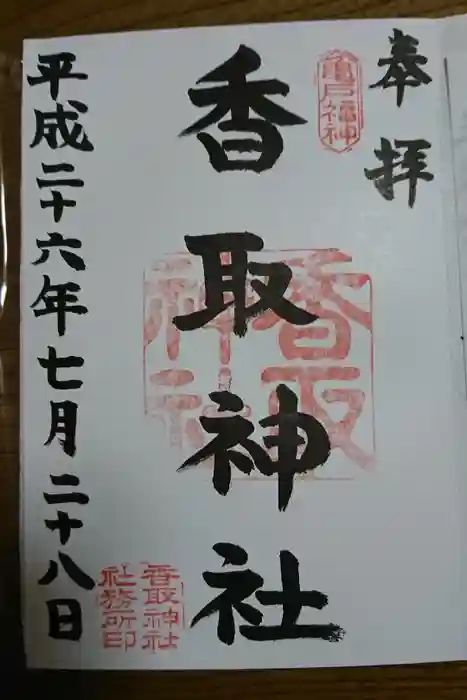 奉拝
亀戸福神
香取神社
香取神社
香取神社
社務所印
平成二十六年七月二十八日